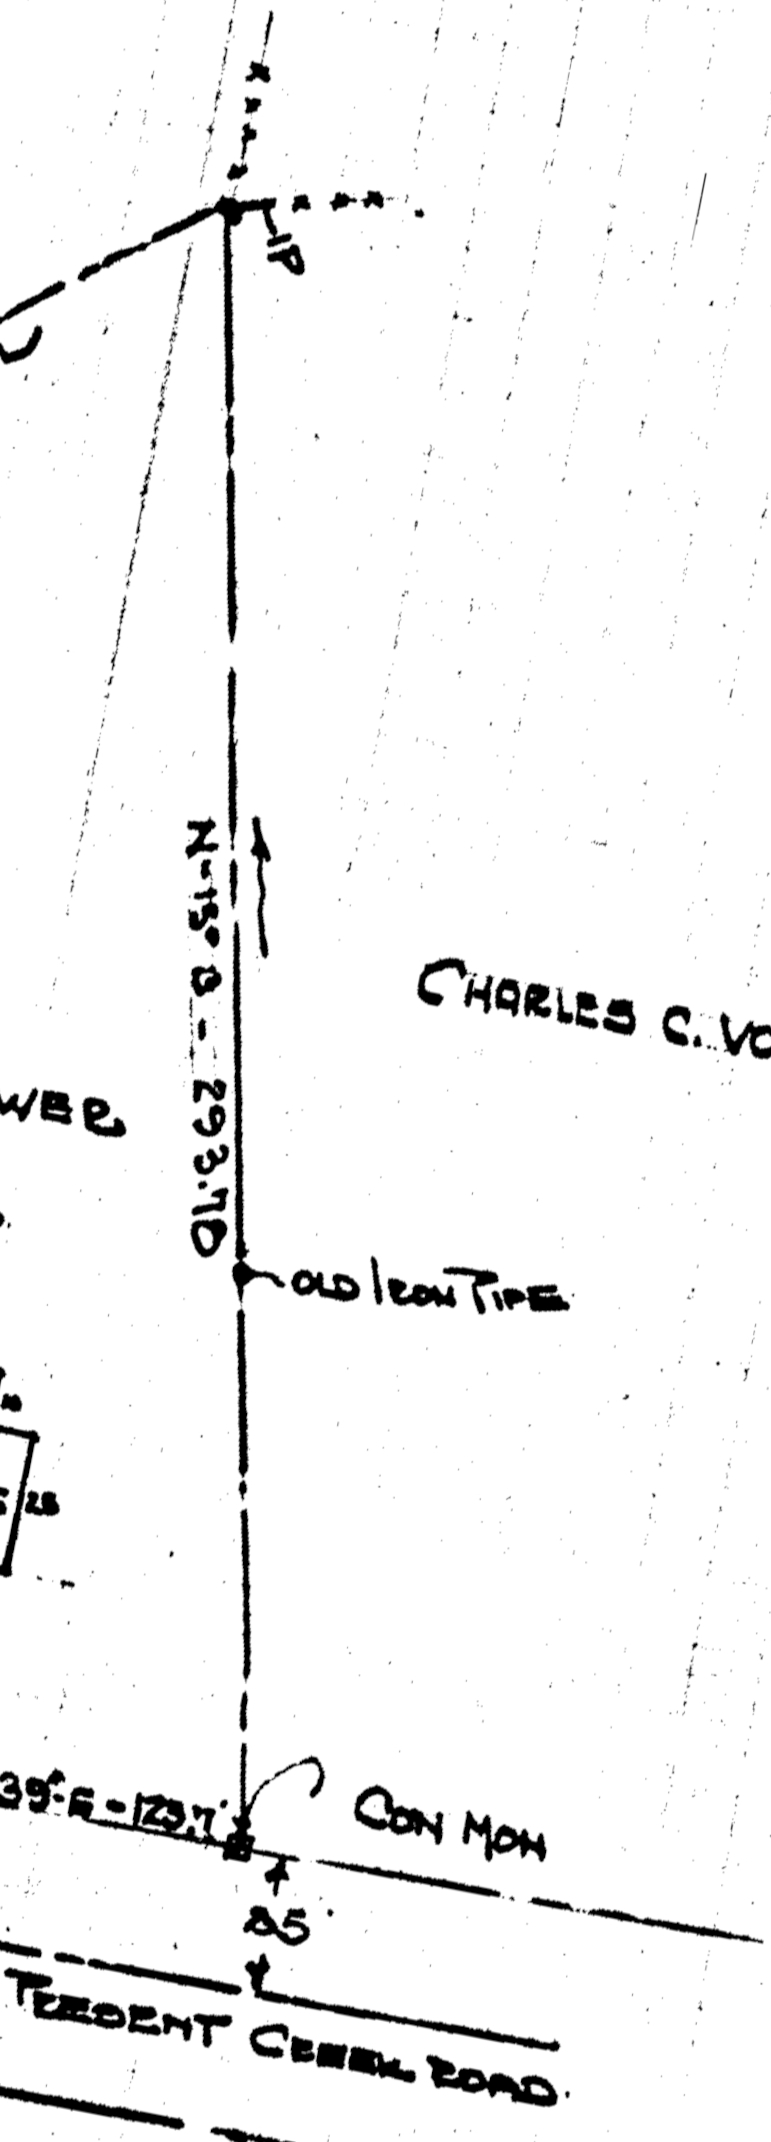 IP
N-15° E - 293.70
CHARLES C. VO
WER
OLD IRON PIPE
25
39°-E - 123.7'
CON MON
CREEK ROAD.